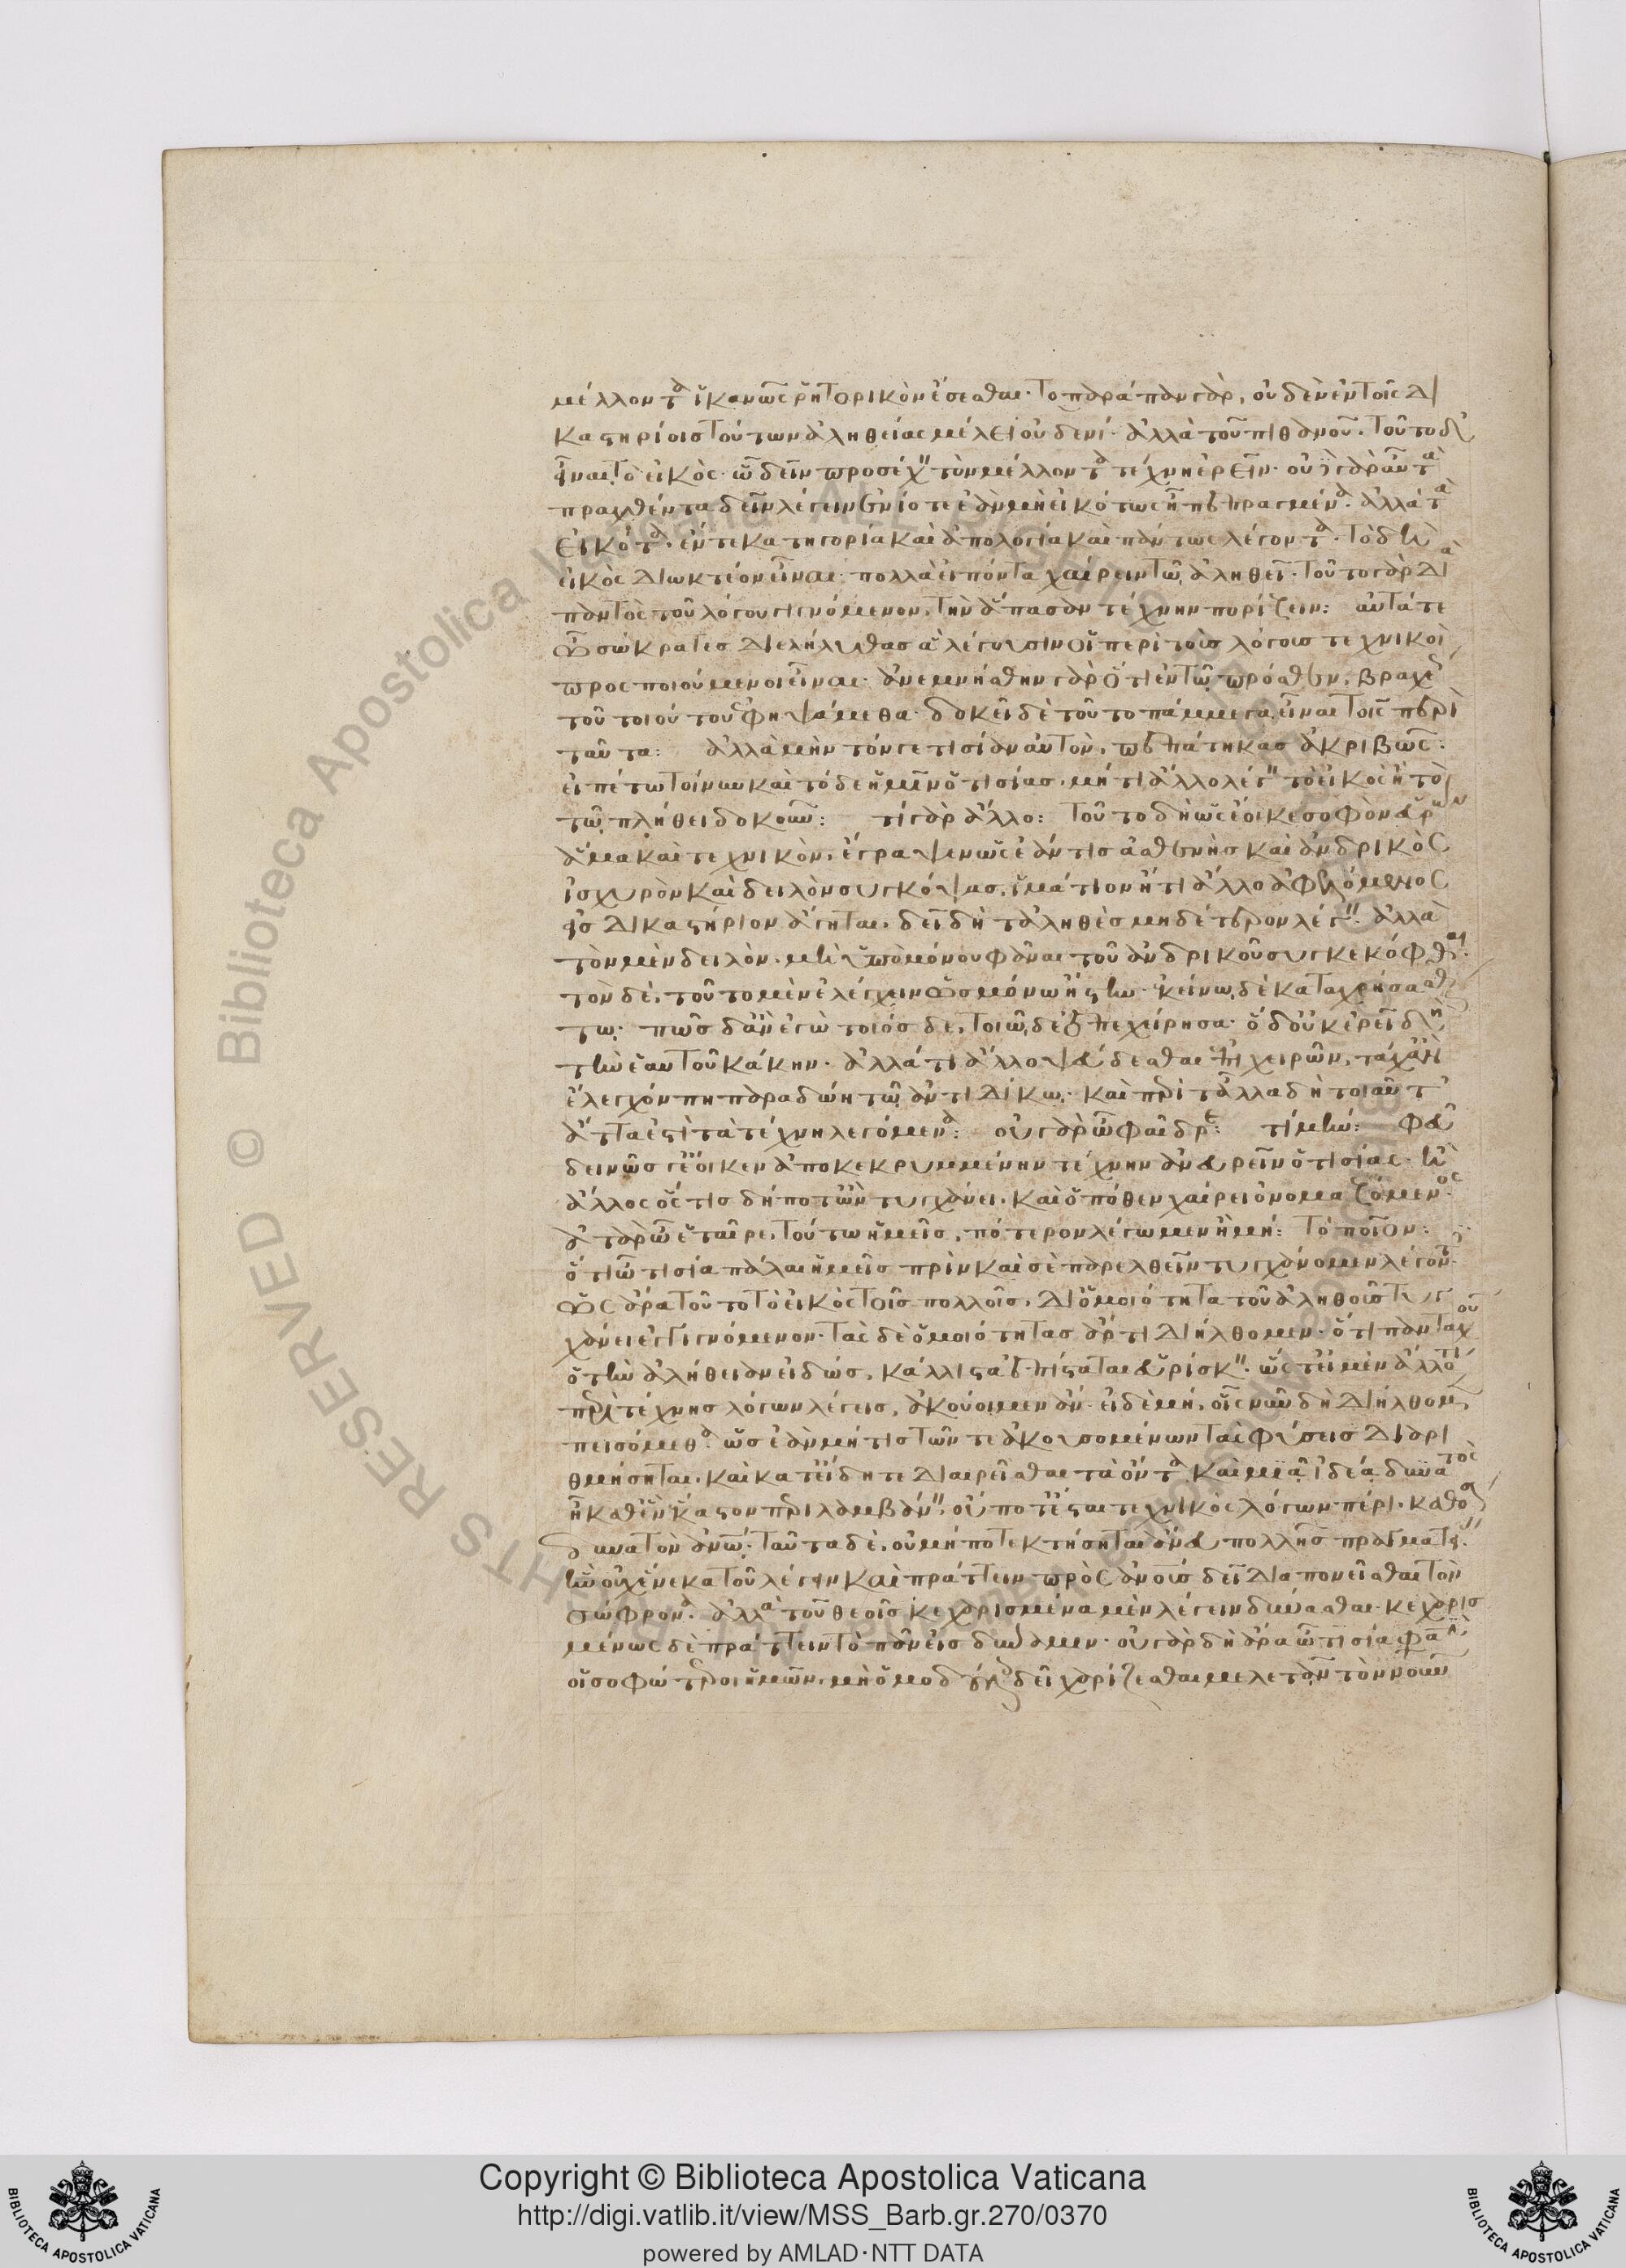 μέλλοντα ἱκανῶς ῥητορικὸν ἔσεσθαι· το παράπαν γὰρ, οὐδὲν ἐν τοῖς δι
καστηρίοις τούτων ἀληθείας μέλει οὐδενί· ἀλλὰ τοῦ πιθανοῦ. τοῦτο δ'
εἶναι τὸ εἰκὸς· ὧ δεῖν προσέχειν τὸν μέλλοντα τέχνη ἐρεῖν· οὐδὲ γὰρ ἂν τὰ
πραχθέντα δεῖν λέγειν ἐνίοτε ἐὰν μὴ εἰκότως ἦ πεπραγμένα. ἀλλὰ τὰ
εἰκότα. ἔν τε κατηγορία καὶ ἀπολογία καὶ πάντως λέγοντα. τὸ δὴ
εἰκὸς διωκτέον εἶναι· πολλὰ εἰπόντα χαίρειν τῶ ἀληθεῖ· τοῦτο γὰρ διὰ
παντὸς τοῦ λόγου γιγνόμενον, τὴν ἅπασαν τέχνην πορίζειν: αὐτά τε
ὦ σώκρατες διελήλυθας ἃ λέγουσιν οἱ περὶ τοὺς λόγους τεχνικοὶ
προσποιούμενοι εἶναι· ἀνεμνήσθην γὰρ ὅτι ἐν τῶ πρόσθεν, βραχέ
τοῦ τοιούτου ἐφηψάμεθα· δοκεῖ δὲ τοῦτο πάμμεγα εἶναι τοῖς περὶ
ταῦτα: ἀλλὰ μὴν τόν γε τισίαν αὐτὸν, πεπάτηκας ἀκριβῶς.
εἰπέτω τοίνυν καὶ τόδε ἡμῖν ὁ τισίας. μή τι ἄλλο λέγει τὸ εἰκὸς ἢ τὸ
τῶ πλήθει δοκοῦν: τί γὰρ ἄλλο: τοῦτο δὴ ὡς ἔοικε σοφὸν εὑρὼν
ἅμα καὶ τεχνικὸν, ἔγραψεν ὡς ἐάν τις ἀσθενὴς καὶ ἀνδρικὸς
ἰσχυρὸν καὶ δειλὸν συγκόψας, ἱμάτιον ἤ τι ἄλλο ἀφελόμενος
εἰς δικαστήριον ἄγηται, δεῖ δὴ τἀληθὲς μηδέτερον λέγειν. ἀλλὰ
τὸν μὲν δειλὸν, μὴ ὑπὸ μόνου φάναι τοῦ ἀνδρικοῦ συγκεκόφθαι.
τὸν δὲ, τοῦτο μὲν ἐλέγχειν ὡς μόνω ἤστην· κείνω δὲ καταχρήσασθαι
τῶ· πῶς δ' ἂν ἐγὼ τοιόσδε, τοιῶδε ἐπεχείρησα· ὁ δ' οὐκ ἐρεῖ δὴ
τὴν ἑαυτοῦ κάκην· ἀλλά τι ἄλλο ψεύδεσθαι ἐπιχειρῶν, τάχ' ἂν
ἔλεγχόν πη παραδώη τῶ ἀντιδίκω. καὶ περὶ τἆλλα δὴ τοιαῦτ'
ἄττα ἐστὶ τὰ τέχνη λεγόμενα: οὐ γὰρ ὦ φαῖδρε: τί μήν: φεῦ
δεινῶς γ' ἔοικεν ἀποκεκρυμμένην τέχνην ἀνευρεῖν ὁ τισίας· ἢ
ἄλλος ὅστις δήποτ' ὢν τυγχάνει. καὶ ὁπόθεν χαίρει ὀνομαζόμενος.
ἀτὰρ ὦ ἑταῖρε, τούτω ἡμεῖς, πότερον λέγωμεν ἢ μή: τὸ ποῖον:
ὅτι ὦ τισία πάλαι ἡμεῖς πρὶν καὶ σὲ παρελθεῖν τυγχάνομεν λέγοντες.
ὡς ἄρα τοῦτο τὸ εἰκὸς τοῖς πολλοῖς, δι' ὁμοιότητα τοῦ ἀληθοῦς τυγ
χάνει ἐγγιγνόμενον· τὰς δὲ ὁμοιότητας ἄρτι διήλθομεν. ὅτι πανταχοῦ
ὁ τὴν ἀλήθειαν εἰδὼς, κάλλιστα ἐπίσταται εὑρίσκειν. ὥστ' εἰ μὲν ἄλλο τι
περὶ τέχνης λόγων λέγεις, ἀκούοιμεν ἄν· εἰ δὲ μή, οἷς νῦν δὴ διήλθομεν
πεισόμεθα. ὡς ἐὰν μή τις τῶν τε ἀκουσομένων τὰς φύσεις διαρι
θμήσηται, καὶ κατ' εἴδη τε διαιρεῖσθαι τὰ ὄντα καὶ μιᾶ ἰδέα δυνατὸς
ἦ καθ' ἓν ἕκαστον περιλαμβάνειν, οὔποτ' ἔσται τεχνικὸς λόγων πέρι. καθ' ὅσον
δυνατὸν ἀνῶ. ταῦτα δὲ, οὐ μήποτε κτήσηται ἄνευ πολλῆς πραγματείας.
ἣν οὐχ ἕνεκα τοῦ λέγειν καὶ πράττειν πρὸς ἀνους δεῖ διαπονεῖσθαι τὸν
σώφρονα. ἀλλὰ τοῦ θεοῖς κεχαρισμένα μὲν λέγειν δύνασθαι. κεχαρισ
μένως δὲ πράττειν τὸ πᾶν εἰς δύναμιν· οὐ γὰρ δὴ ἄρα ὦ τισία φασὶν
οἱ σοφώτεροι ἡμῶν, μὴ ὁμοδούλοις δεῖ χαρίζεσθαι μελετᾶν τὸν νοῦν
Copyright © Biblioteca Apostolica Vaticana
http://digi.vatlib.it/view/MSS_Barb.gr.270/0370
powered by AMLAD·NTT DATA